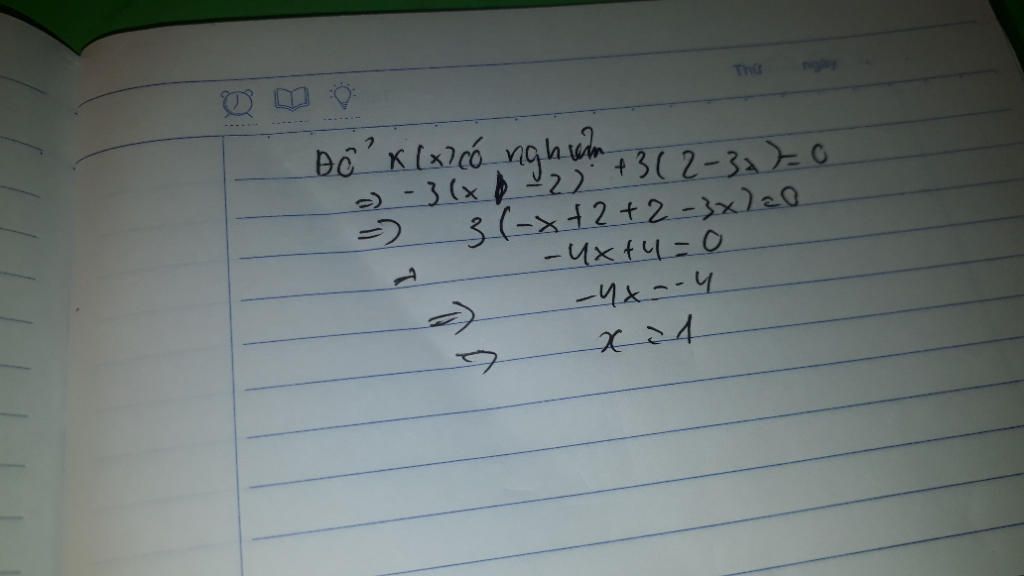 Thứ ngày
Để K(x) có nghiệm
=> -3(x -2) +3(2-3x)=0
=> 3(-x+2+2-3x)=0
-> -4x+4=0
=> -4x=-4
=> x=1